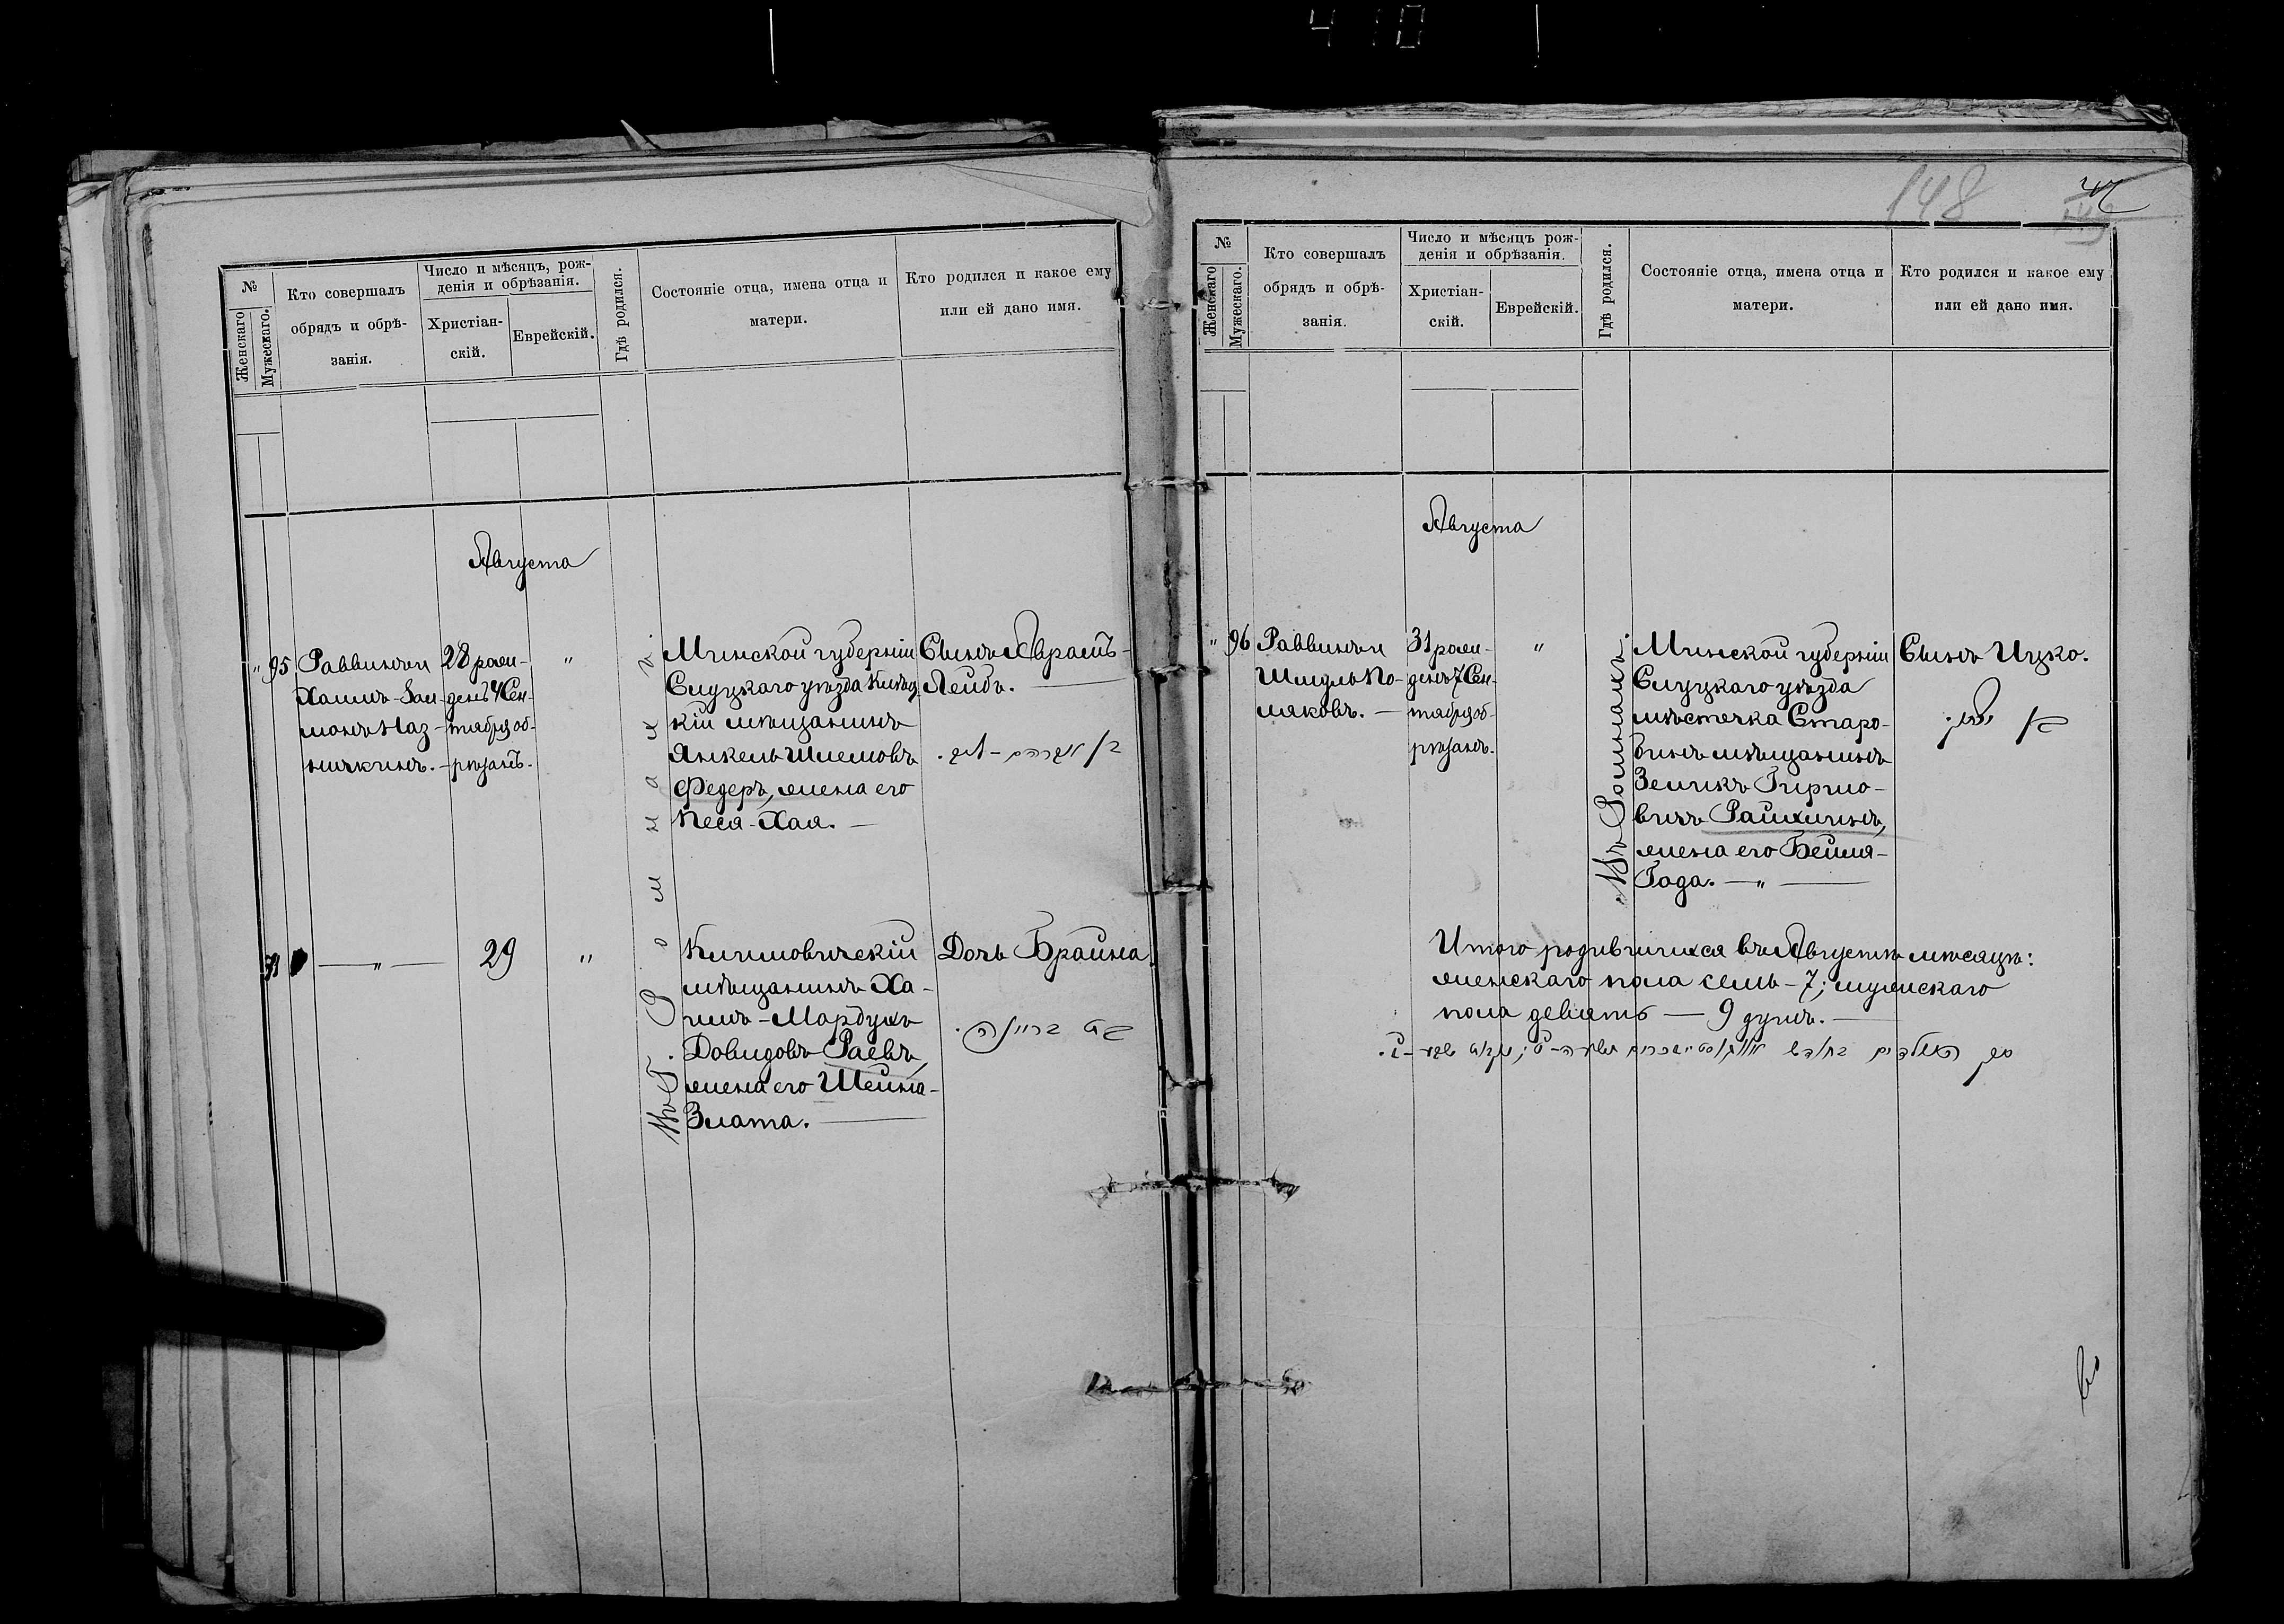 410
№
Женскаго
Мужескаго.
Кто совершалъ
обрядъ и обрѣ-
занія.
Число и мѣсяцъ, рож-
денія и обрѣзанія.
Христіан-
скій.
Еврейскій.
Гдѣ родился.
Состояніе отца, имена отца и
матери.
Кто родился и какое ему
или ей дано имя.
Августа
" 95
Раввинъ и
Хаимъ-Зал-
монъ Наз-
28 рож-
денъ 4 Сен-
тября об-
рѣзанъ.
"
Въ Г. Ромнахъ.
Минской губерніи
Слуцкаго уѣзда
кій мѣщанинъ
Янкель Шлемовъ
Федеръ, жена его
Песя-Хая. —
Сынъ Абрамъ-
Лейбъ. —
בן אברהם - ליב.
— " —
29
"
Климовическій
мѣщанинъ Ха-
имъ-Мордухъ
Довидовъ Раевъ,
жена его Шейна-
Злата. —
Дочь Брайна.
בת בריינה.
148
№
Женскаго
Мужескаго.
Кто совершалъ
обрядъ и обрѣ-
занія.
Число и мѣсяцъ рож-
денія и обрѣзанія.
Христіан-
скій.
Еврейскій.
Гдѣ родился.
Состояніе отца, имена отца и
матери.
Кто родился и какое ему
или ей дано имя.
Августа
" 96
Раввинъ и
Шмуль По-
ляковъ. —
31 рож-
денъ 7 Сен-
тября об-
рѣзанъ.
"
Въ Ромнахъ.
Минской губерніи
Слуцкаго уѣзда
мѣстечка Старо-
бинъ мѣщанинъ
Зеликъ Гиршо-
вичъ Райхлинъ,
жена его Бейля-
Года. — " —
Сынъ Ицко.
בן יצחק.
Итого родившихся въ Августѣ мѣсяцѣ:
женскаго пола семь - 7; мужскаго
пола девять — 9 душъ. —